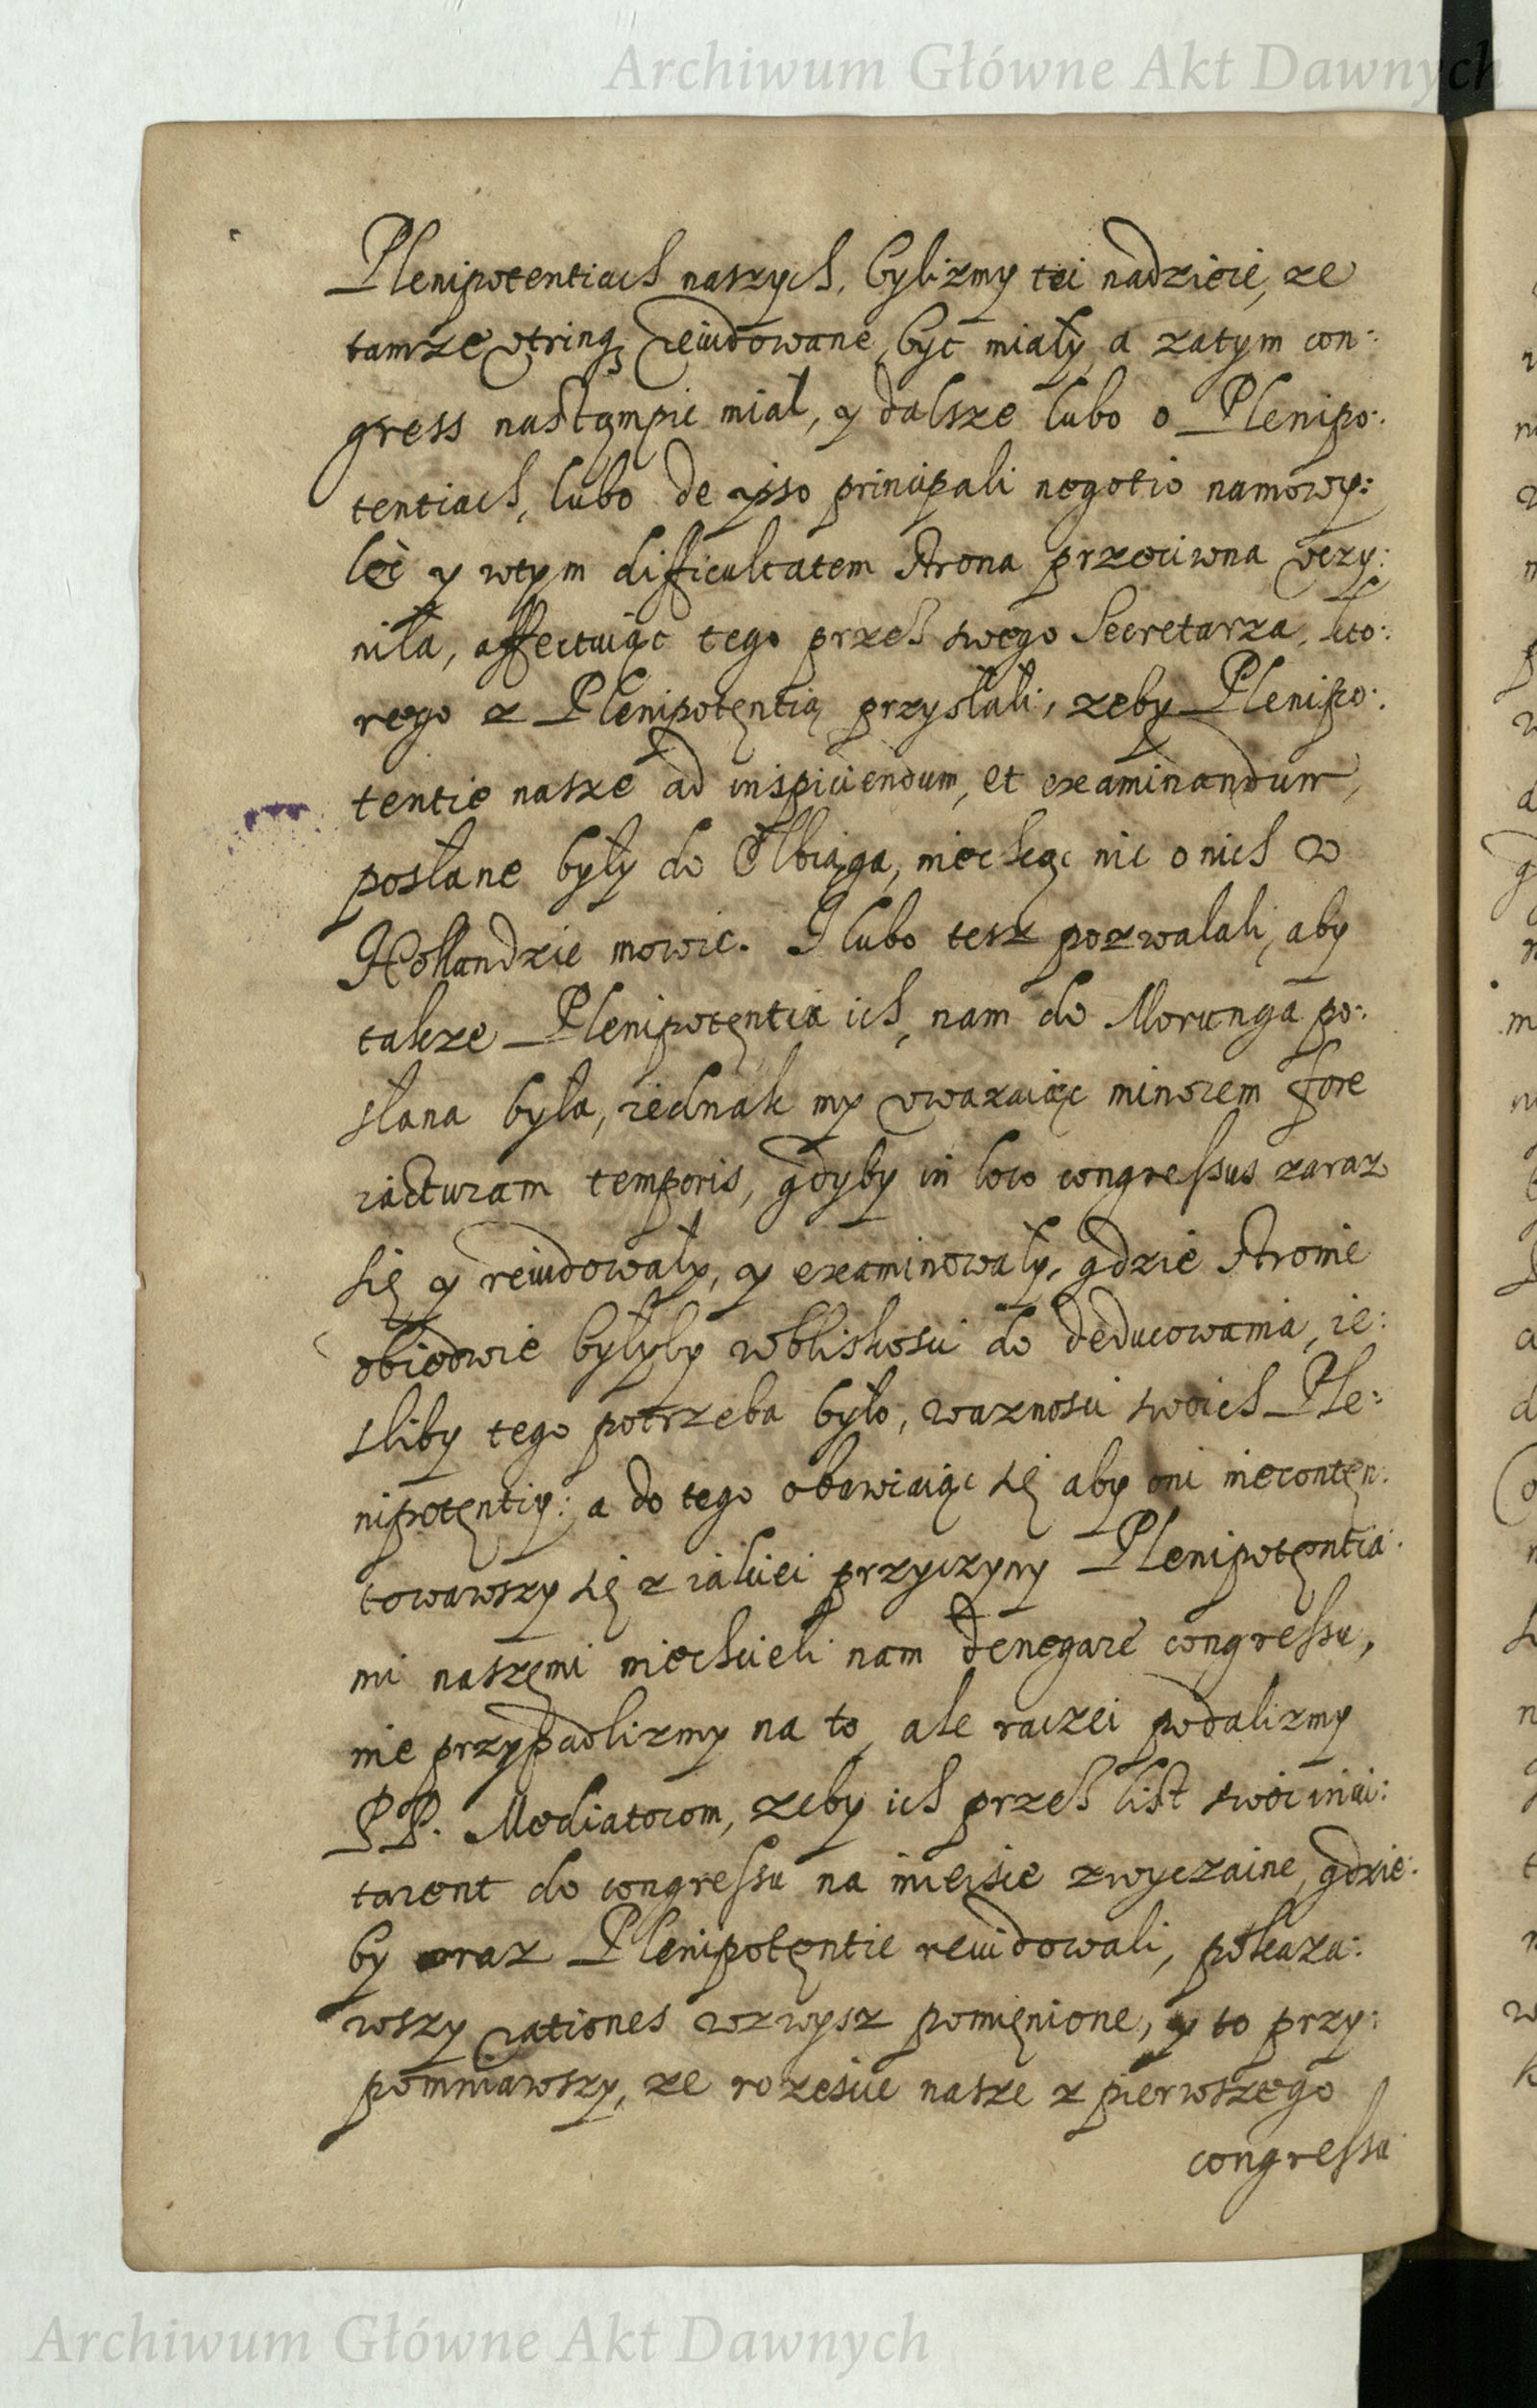 Archiwum Główne Akt Dawnych
Plenipotentiach naszych, bylizmy tei nadzieie, ze
tamze vtrinq rewidowane, być miały a zatym con:
gress nastąmpic miał, y dalsze lubo o Plenipo:
tentiach, lubo de ipso principali negotio namowy:
lec y wtym difficultatem strona przeciwna vczy:
niła, affectuiąc tego przes swego Secretarza, kto:
rego z Plenipotęntią przysłali, zeby Plenipo:
tentie nasze ad inspiciendum, et examinandum,
posłane były do Elbiąga, niechcąc nic o nich w
Hollandzie mowic. I lubo tesz pozwalali, aby
takze Plenipotęntia ich, nam do Morunga po:
słana była, iednak my vwazaiąc minorem fore
iacturam temporis, gdyby in loco congressus zaraz
się y rewidowały, y examinowały, gdzie stronie
obiedwie byłyby wbliskosci do deducowania, ie:
sliby tego potrzeba było, waznosci swoich Ple:
nipotęntiy: a do tego obawiaiąc się aby oni niecontęn:
towawszy się z iakiei przyczyny Plenipotęntia:
mi naszęmi niechcieli nam denegare congressu,
nie przypadlizmy na to, ale raczei podalizmy
PP. Mediatorom, zeby ich przes list swoi inui:
tarent do congressu na mieisce zwyczaine, gdzie:
by oraz Plenipotęntie rewidowali, pokaza:
wszy rationes wzwysz pomięnione, y to przy:
pomniawszy, ze rozescie nasze z pierwszego
congressu
Archiwum Główne Akt Dawnych